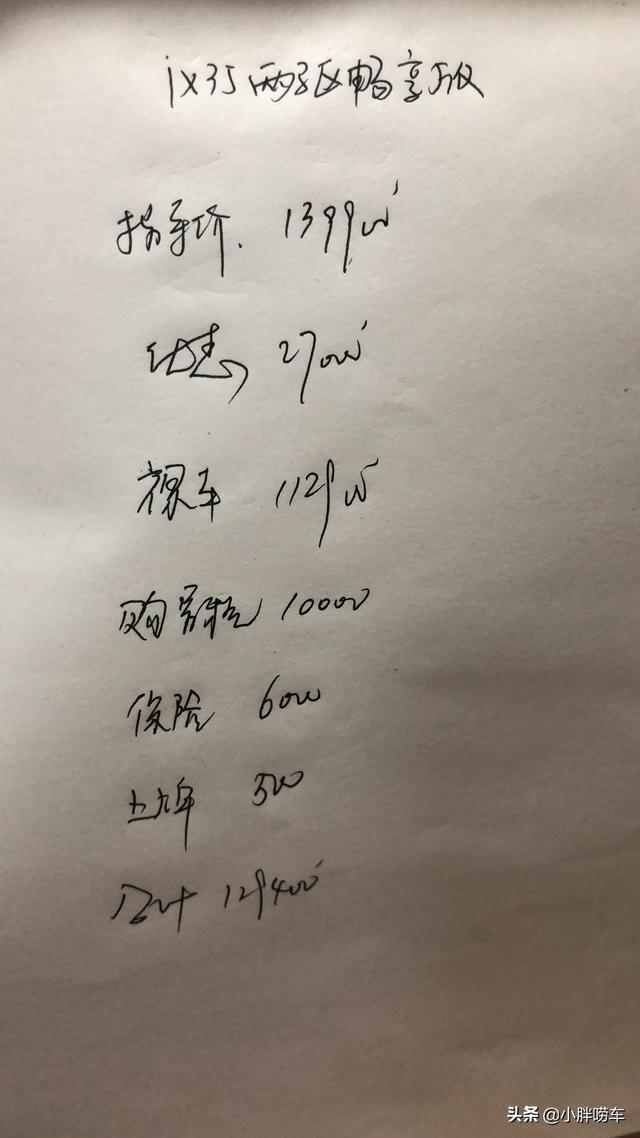 ix35两驱畅享版
指导价. 139900
优惠 27000
裸车 112900
购置税 10000
保险 6000
上牌 500
合计 129400
头条 @小胖唠车